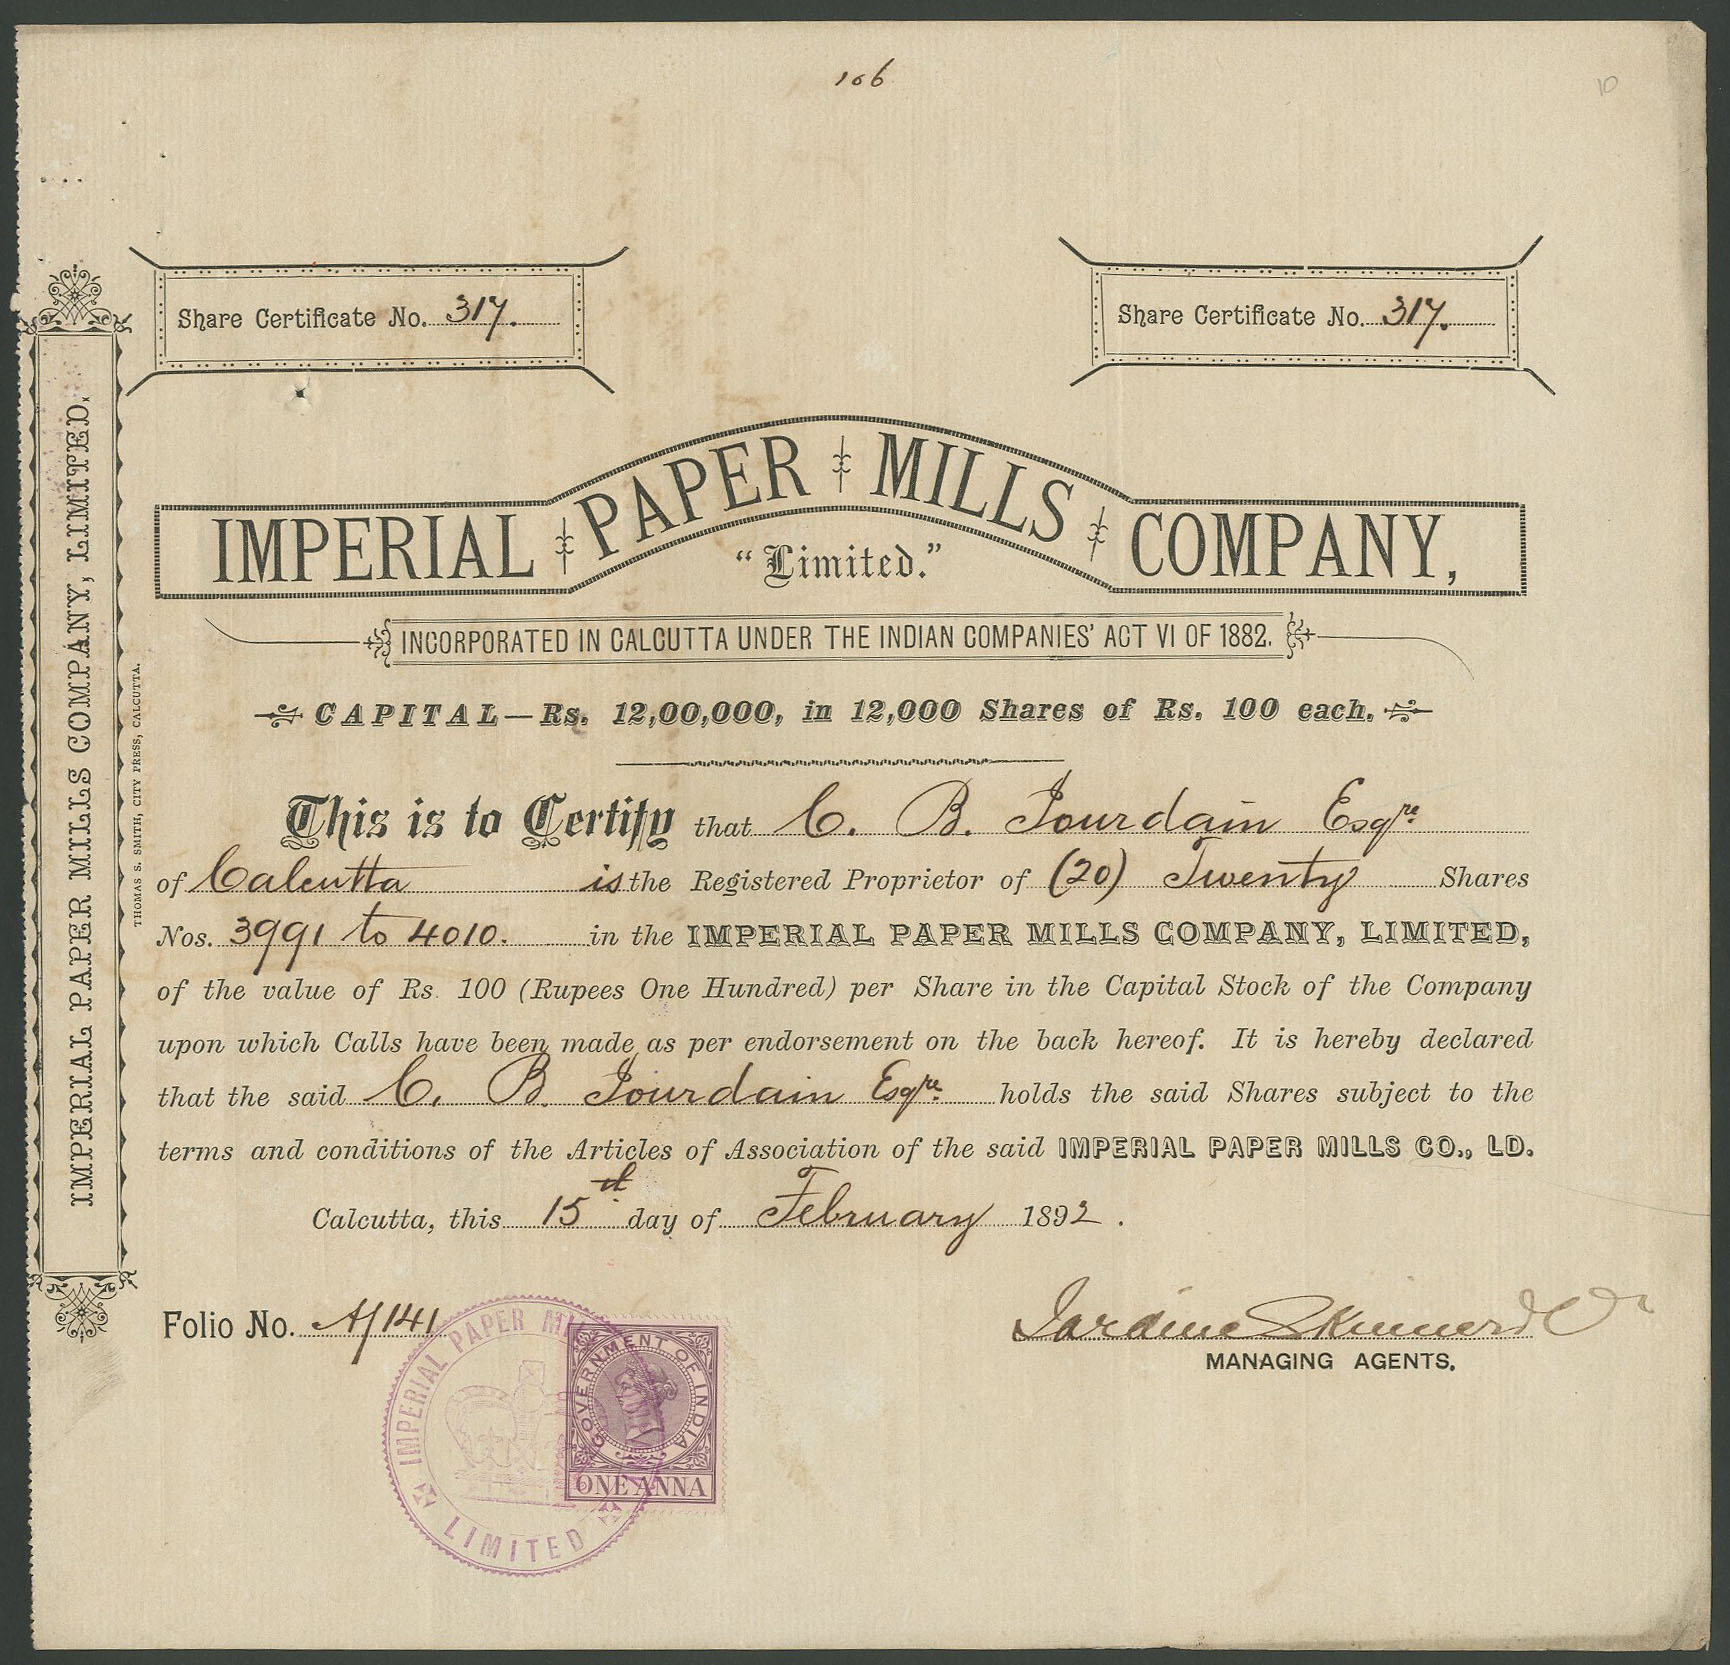 106
10
Share Certificate No. 317.
Share Certificate No. 317.
IMPERIAL PAPER MILLS COMPANY,
"Limited."
INCORPORATED IN CALCUTTA UNDER THE INDIAN COMPANIES' ACT VI OF 1882.
CAPITAL—Rs. 12,00,000, in 12,000 Shares of Rs. 100 each.
This is to Certify that C. B. Jourdain Esqre.
of Calcutta is the Registered Proprietor of (20) Twenty Shares
Nos. 3991 to 4010. in the IMPERIAL PAPER MILLS COMPANY, LIMITED,
of the value of Rs. 100 (Rupees One Hundred) per Share in the Capital Stock of the Company
upon which Calls have been made as per endorsement on the back hereof. It is hereby declared
that the said C. B. Jourdain Esqre. holds the said Shares subject to the
terms and conditions of the Articles of Association of the said IMPERIAL PAPER MILLS CO., LD.
Calcutta, this 15th day of February 1892.
Folio No. A/141
Jardine Skinner & Co
MANAGING AGENTS.
IMPERIAL PAPER MILLS
LIMITED
GOVERNMENT OF INDIA
ONE ANNA
IMPERIAL PAPER MILLS COMPANY, LIMITED.
THOMAS S. SMITH, CITY PRESS, CALCUTTA.